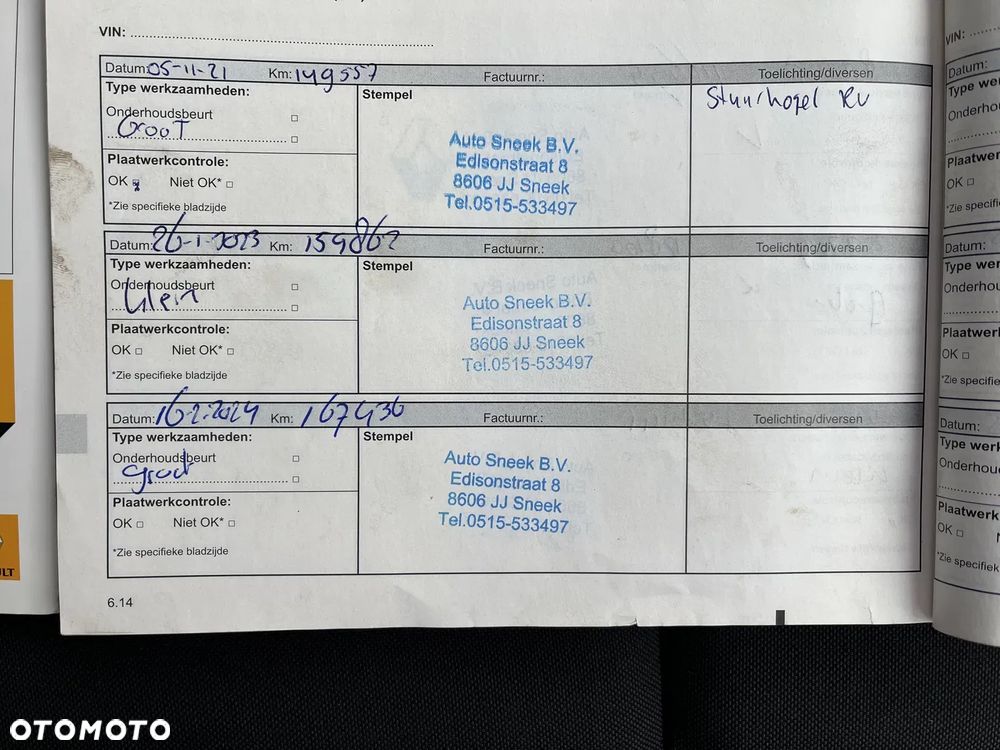 VIN:
Datum: 05-11-21 Km: 149557 Factuurnr.: Toelichting/diversen
Type werkzaamheden: Stempel Stuurkogel RV
Onderhoudsbeurt
Groot
Auto Sneek B.V.
Edisonstraat 8
8606 JJ Sneek
Tel.0515-533497
Plaatwerkcontrole:
OK Niet OK*
*Zie specifieke bladzijde
Datum: 26-1-2023 Km: 159862 Factuurnr.: Toelichting/diversen
Type werkzaamheden: Stempel
Onderhoudsbeurt
klein
Auto Sneek B.V.
Edisonstraat 8
8606 JJ Sneek
Tel.0515-533497
Plaatwerkcontrole:
OK Niet OK*
*Zie specifieke bladzijde
Datum: 16-2-2024 Km: 167436 Factuurnr.: Toelichting/diversen
Type werkzaamheden: Stempel
Onderhoudsbeurt
groot
Auto Sneek B.V.
Edisonstraat 8
8606 JJ Sneek
Tel.0515-533497
Plaatwerkcontrole:
OK Niet OK*
*Zie specifieke bladzijde
6.14
VIN:
Datum:
Type
Plaatwerk
OK
*Zie
Datum:
Type
Plaatwerk
OK
*Zie
Datum:
Type
Plaatwerk
OK
*Zie
OTOMOTO